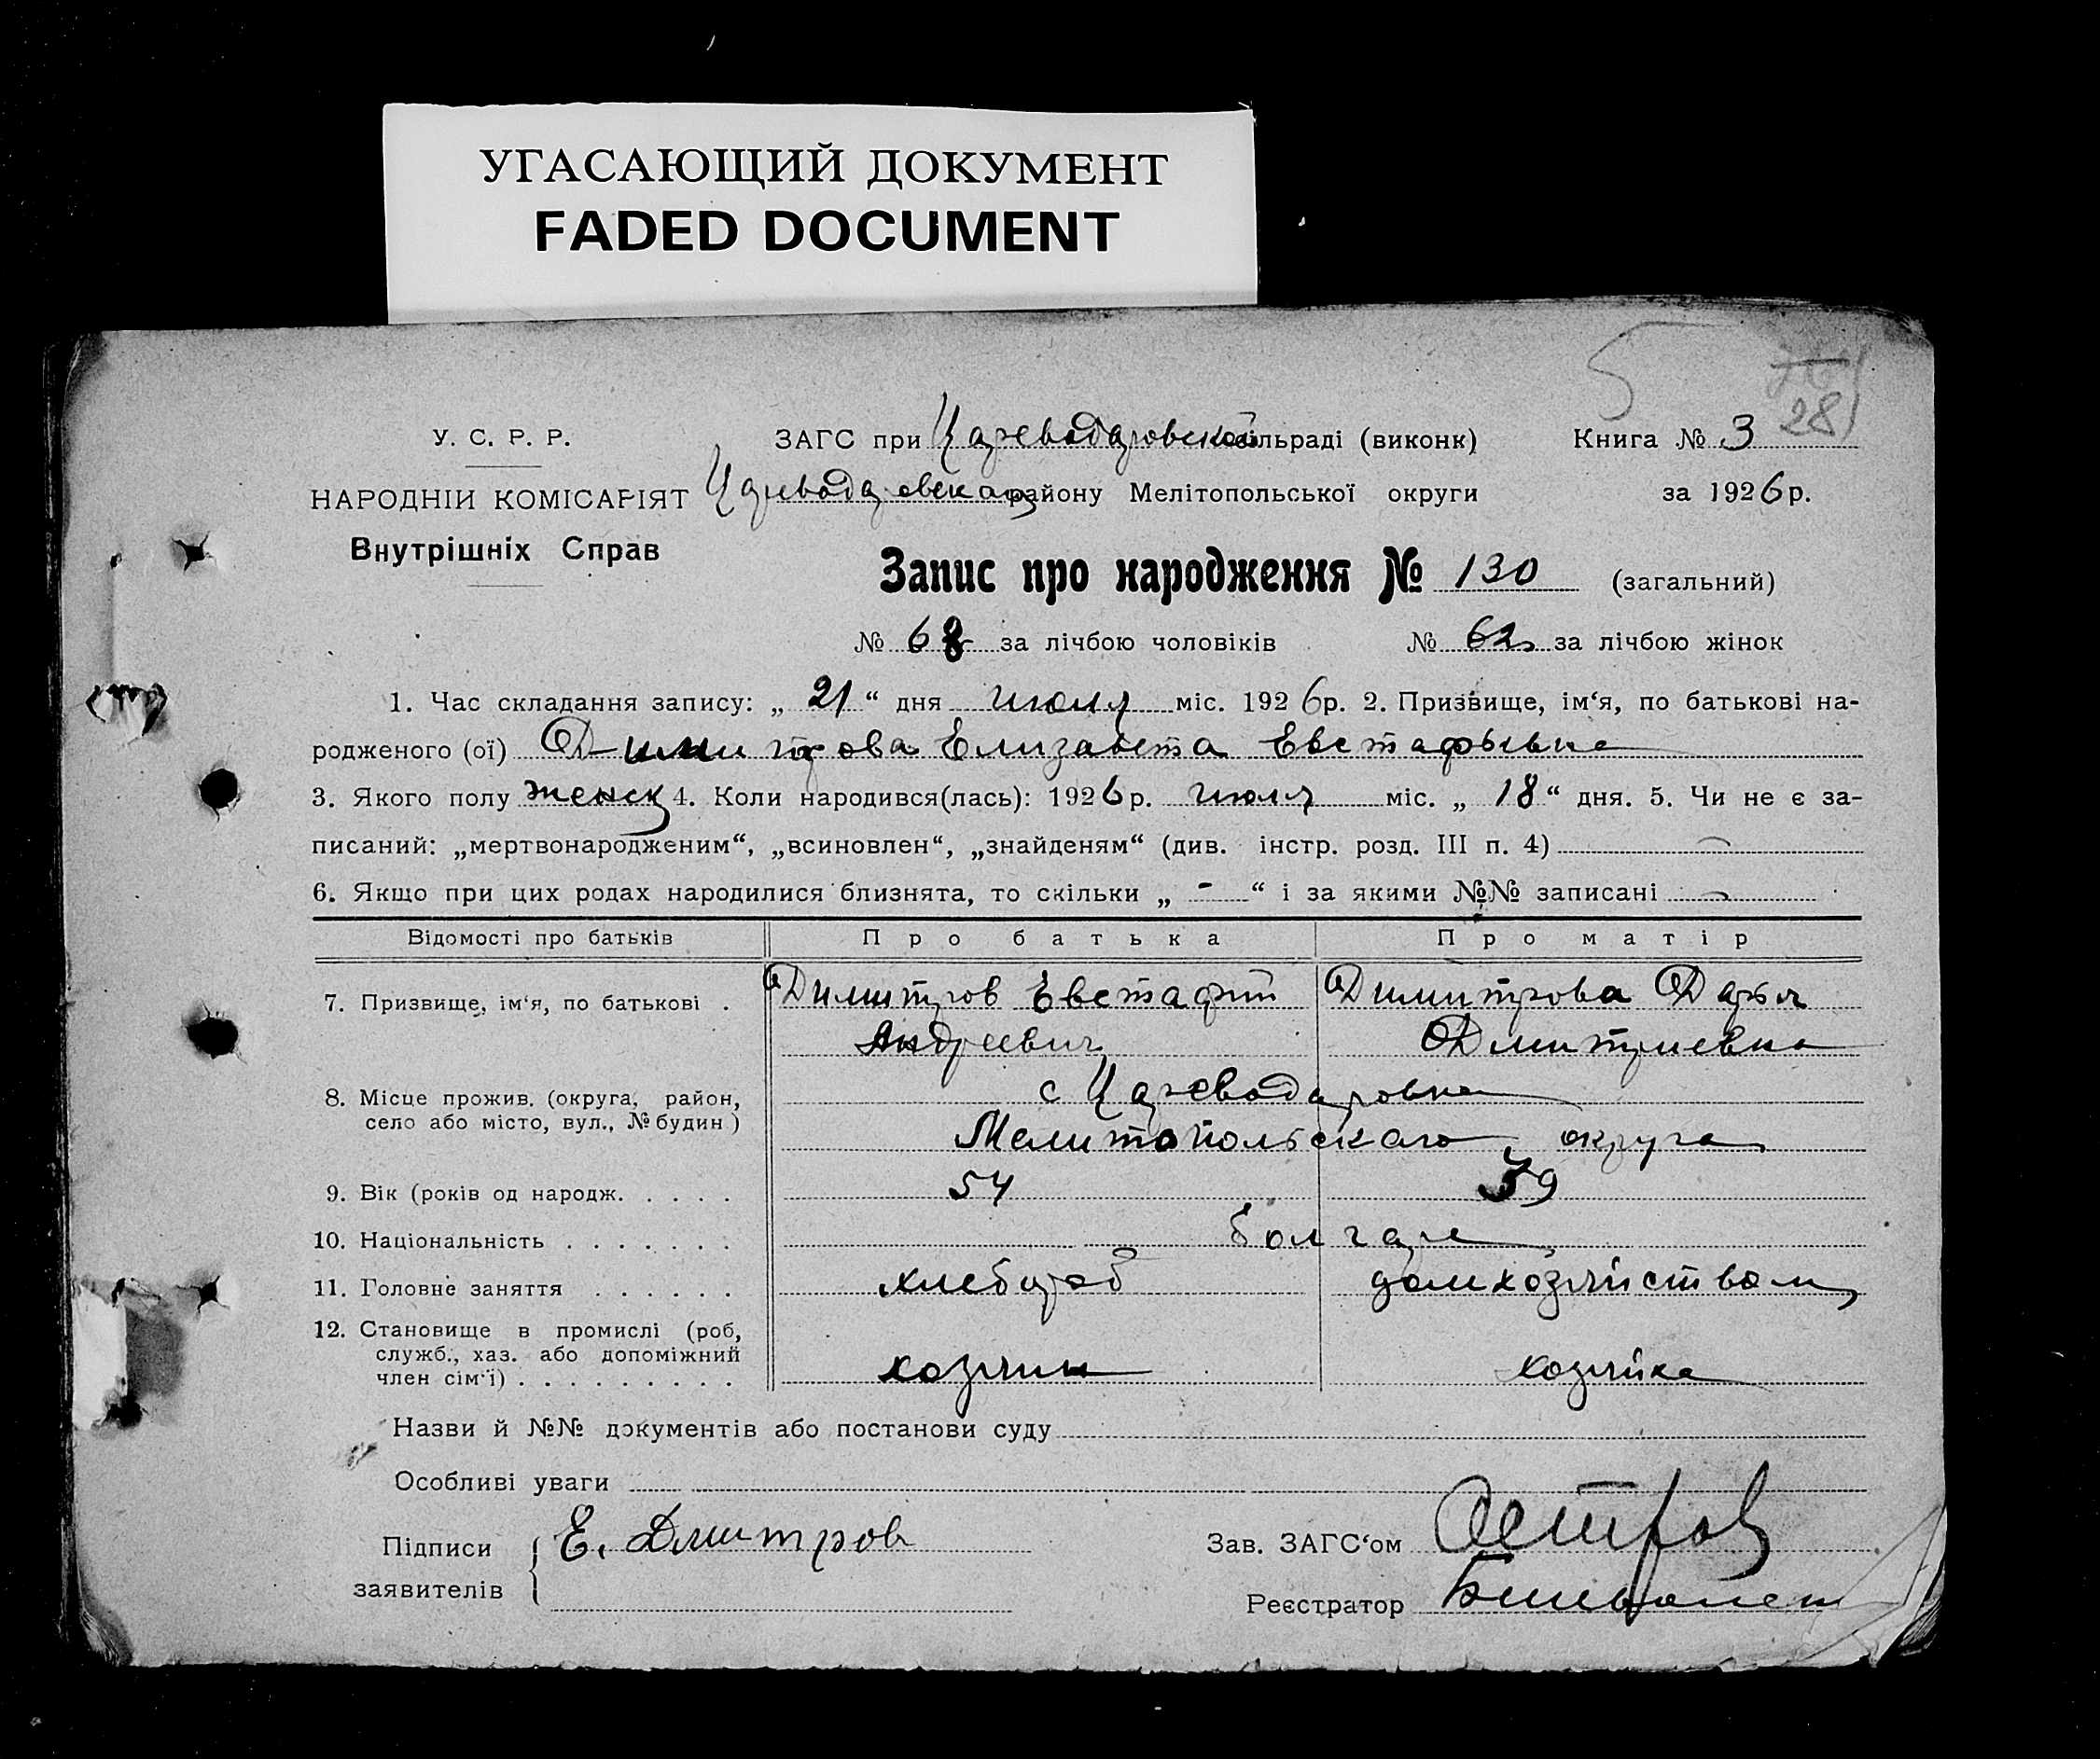 УГАСАЮЩИЙ ДОКУМЕНТ
FADED DOCUMENT
5
28
У. С. Р. Р. ЗАГС при Цареводаровской сільраді (виконк) Книга № 3
НАРОДНІЙ КОМІСАРІЯТ Цареводаровская району Мелітопольської округи за 1926 р.
Внутрішніх Справ
Запис про народження № 130 (загальний)
№ 68 за лічбою чоловіків № 62 за лічбою жінок
1. Час складання запису: „ 21 “ дня июля міс. 1926 р. 2. Призвище, ім‘я, по батькові на-
родженого (ої) Димитрова Елизавета Евстафьевна
3. Якого полу женск 4. Коли народився(лась): 1926 р. июля міс. „ 18 “ дня. 5. Чи не є за-
писаний: „мертвонародженим“, „всиновлен“, „знайденям“ (див. інстр. розд. III п. 4)
6. Якщо при цих родах народилися близнята, то скільки „ - “ і за якими №№ записані
Відомості про батьків Про батька Про матір
7. Призвище, ім‘я, по батькові . Димитров Евстафий Димитрова Дарья
Андреевич Дмитриевна
8. Місце прожив. (округа, район, с Цареводаровка
село або місто, вул., № будин)
Мелитопольскаго округа
9. Вік (років од народж. . . . . 54 39
10. Національність . . . . . . . болгаре
11. Головне заняття . . . . . . хлебороб домхозяйством
12. Становище в промислі (роб,
служб., хаз. або допоміжний
член сім‘ї) . . . . . . . . . хозяин хозяйка
Назви й №№ документів або постанови суду
Особливі уваги
Підписи Е. Дмитров Зав. ЗАГС‘ом
заявителів
Реєстратор